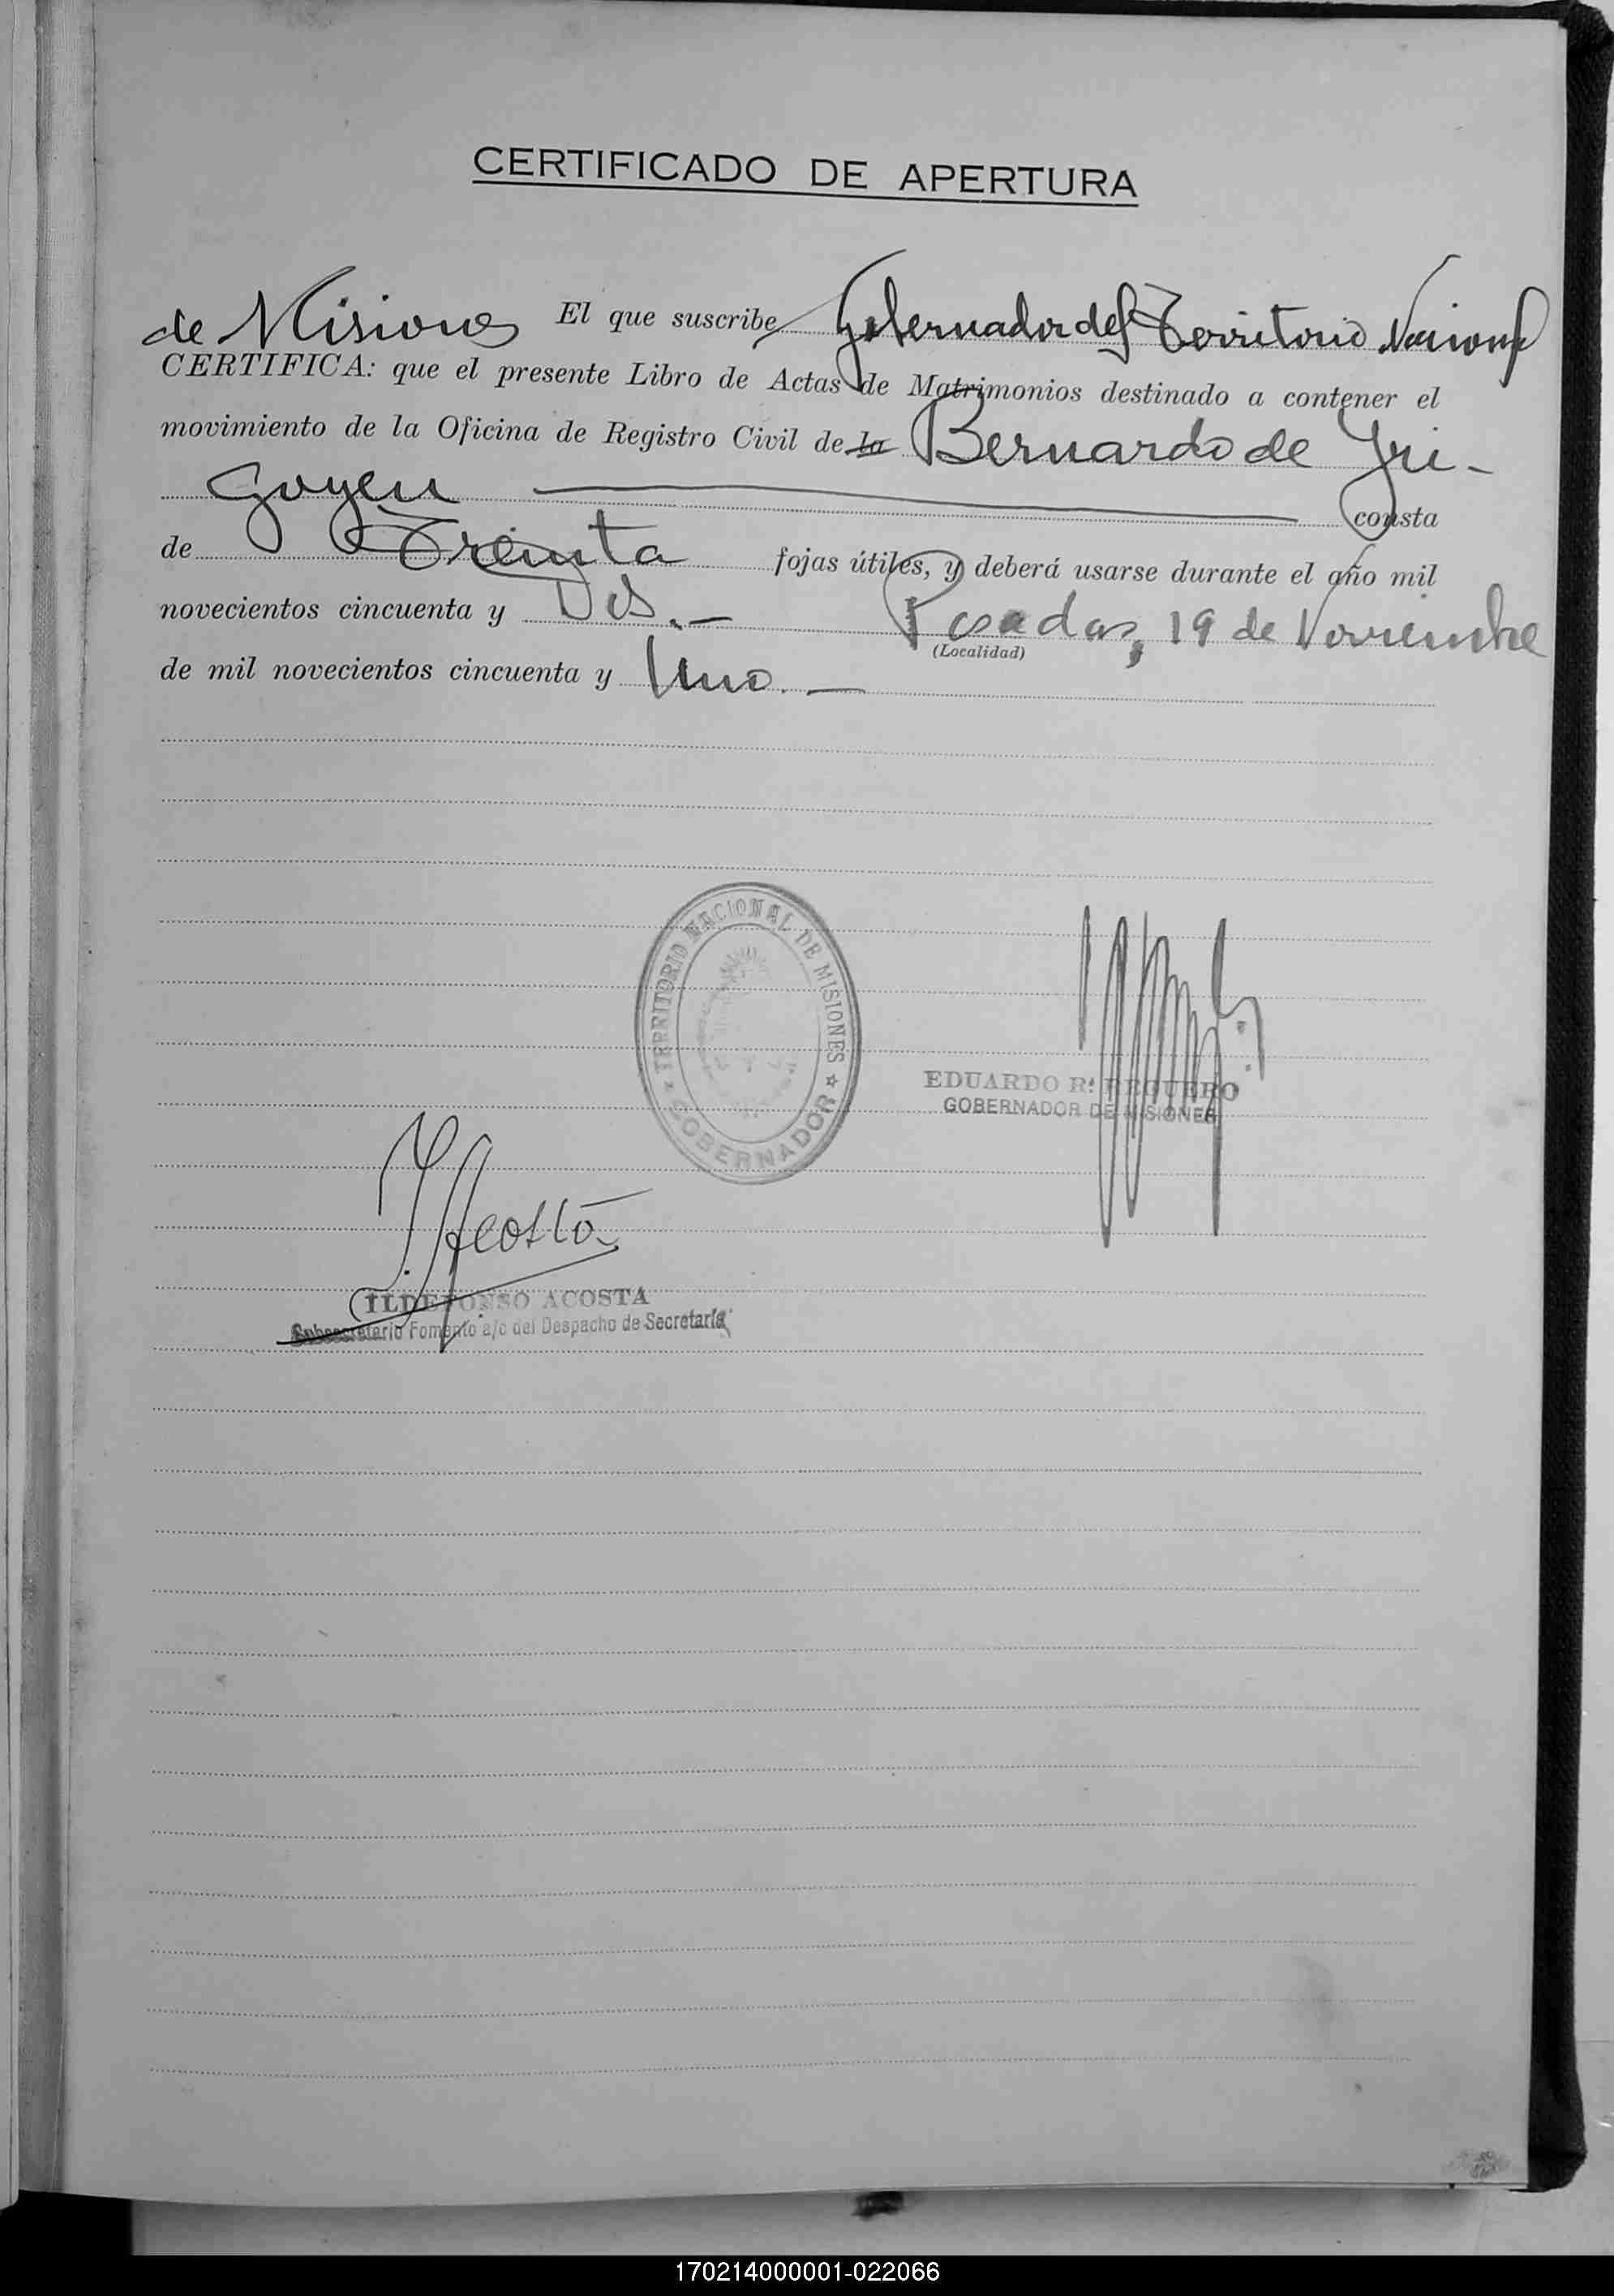 CERTIFICADO DE APERTURA
El que suscribe Gobernador del Territorio Nacional
de Misiones
CERTIFICA: que el presente Libro de Actas de Matrimonios destinado a contener el
movimiento de la Oficina de Registro Civil de la Bernardo de Yri-
goyen consta
de Treinta fojas útiles, y deberá usarse durante el año mil
novecientos cincuenta y Dos.— Posadas, 19 de Noviembre
(Localidad)
de mil novecientos cincuenta y Uno.—
TERRITORIO NACIONAL DE MISIONES
GOBERNADOR
EDUARDO R. REGUERO
GOBERNADOR DE MISIONES
I. Acosta
ILDEFONSO ACOSTA
Subsecretario Fomento a/c del Despacho de Secretaría
170214000001-022066